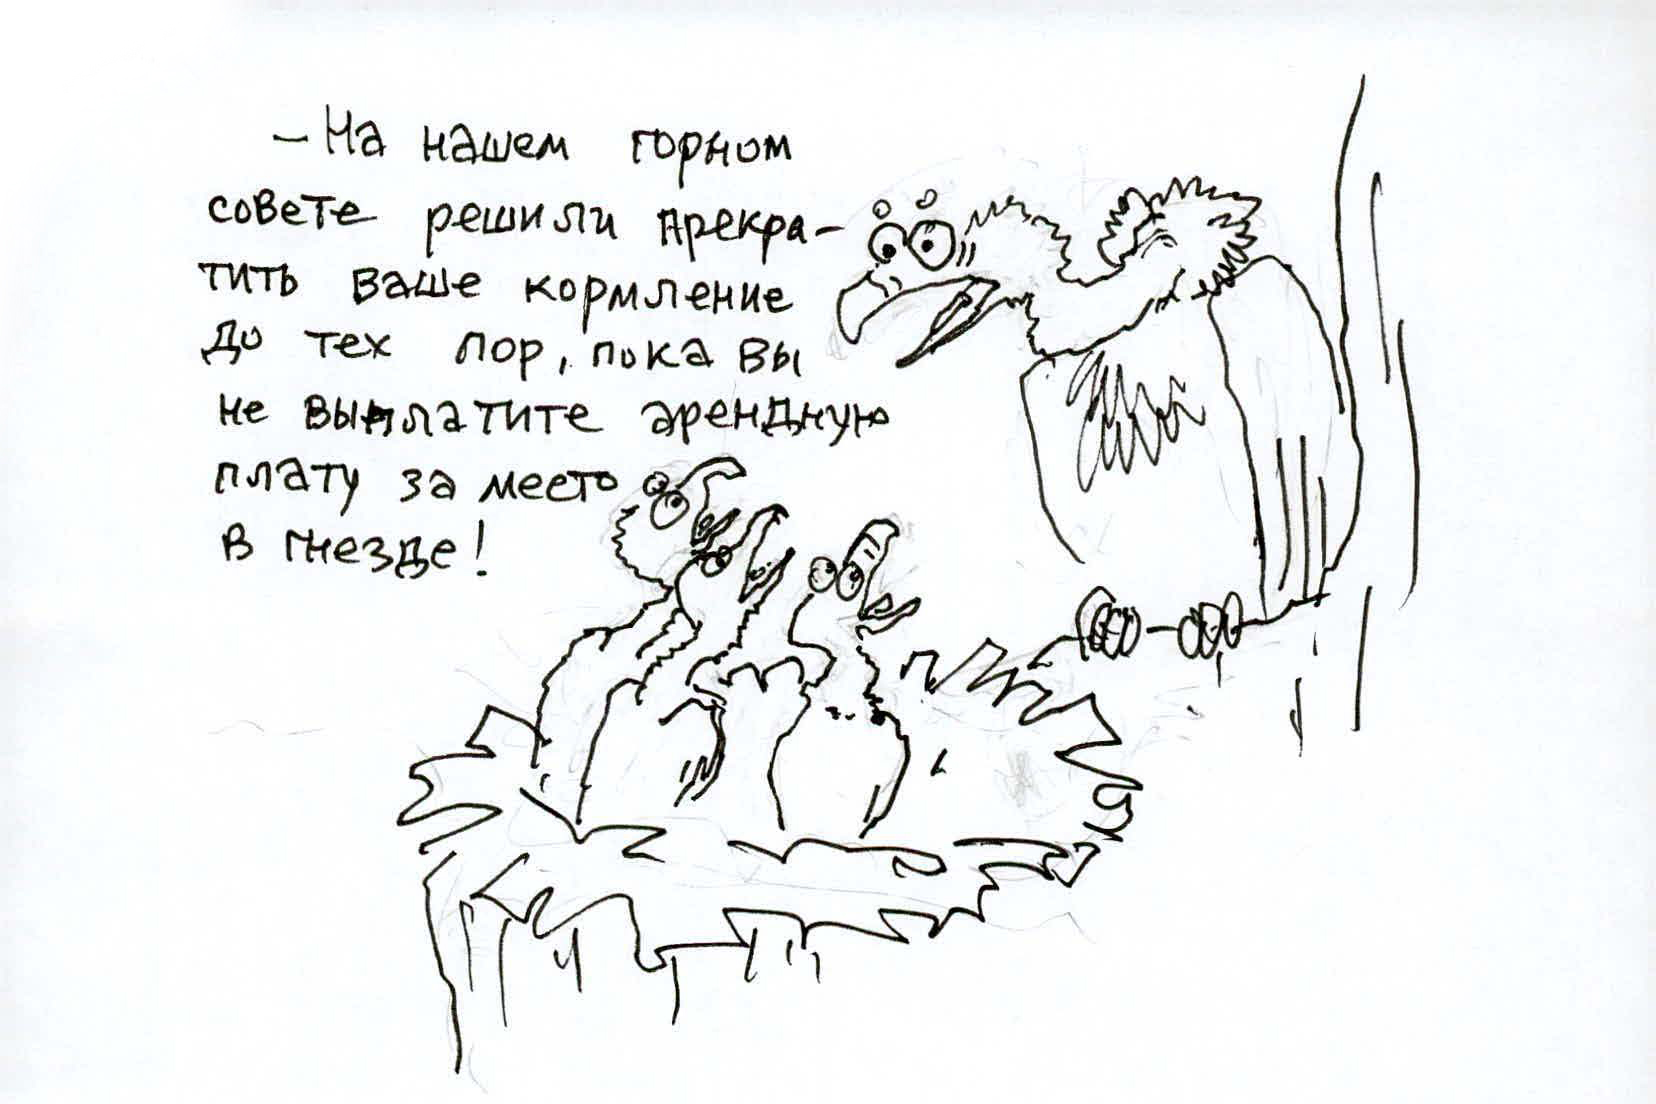 – На нашем горном
совете решили прекра–
тить ваше кормление
до тех пор, пока вы
не выплатите арендную
плату за место
в гнезде!